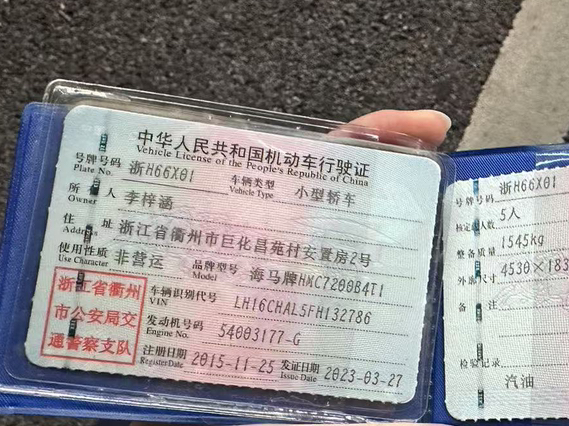 中华人民共和国机动车行驶证
Vehicle License of the People's Republic of China
号牌号码 浙H66X01 车辆类型 小型轿车
Plate No. Vehicle Type
所 人 李梓涵
Owner
住 址 浙江省衢州市巨化昌苑村安置房2号
Address
使用性质 非营运 品牌型号 海马牌HMC7200B4T1
Use Character Model
浙江省衢州
市公安局交
通警察支队
车辆识别代号 LH16CHAL5FH132786
VIN
发动机号码 54003177-G
Engine No.
注册日期 2015-11-25 发证日期 2023-03-27
Register Date Issue Date
号牌号码 浙H66X01
核定 人数 5人
整备质量 1545kg
外廓尺寸 4530×183
备 注
检验记录
汽油